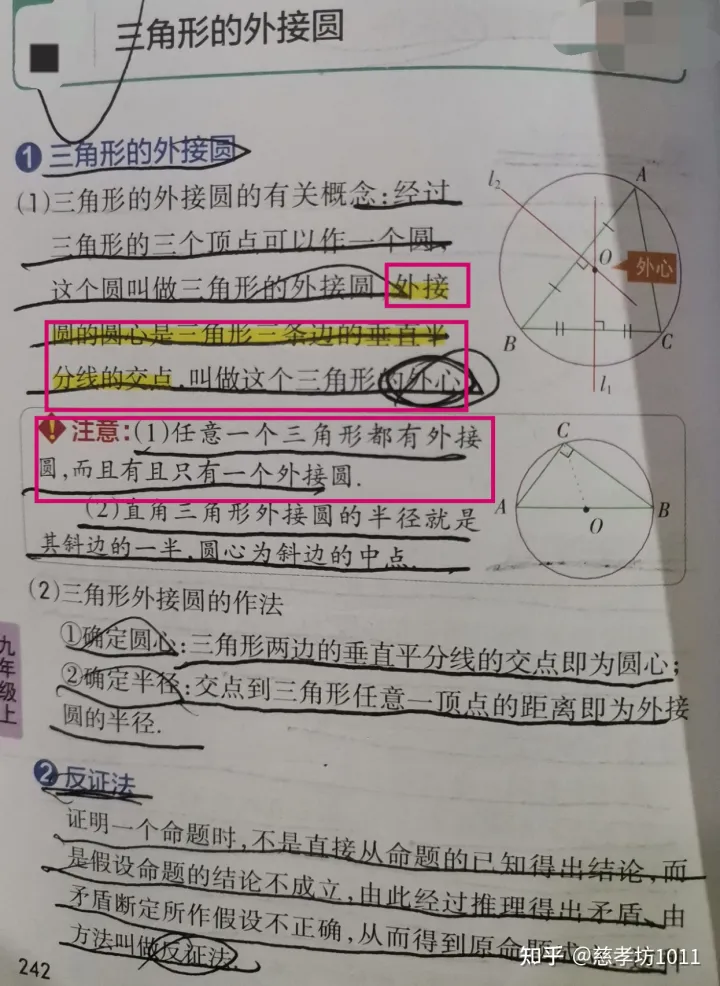 三角形的外接圆
1 三角形的外接圆
(1)三角形的外接圆的有关概念:经过
三角形的三个顶点可以作一个圆,
这个圆叫做三角形的外接圆.外接
圆的圆心是三角形三条边的垂直平
分线的交点,叫做这个三角形的外心.
l₂
A
O
外心
B
C
l₁
! 注意:(1)任意一个三角形都有外接
圆,而且有且只有一个外接圆.
(2)直角三角形外接圆的半径就是
其斜边的一半,圆心为斜边的中点.
C
A
B
O
(2)三角形外接圆的作法
①确定圆心:三角形两边的垂直平分线的交点即为圆心;
②确定半径:交点到三角形任意一顶点的距离即为外接
圆的半径.
九年级上
2 反证法
证明一个命题时,不是直接从命题的已知得出结论,而
是假设命题的结论不成立,由此经过推理得出矛盾,由
矛盾断定所作假设不正确,从而得到原命题成
方法叫做反证法.
242
知乎 @慈孝坊1011